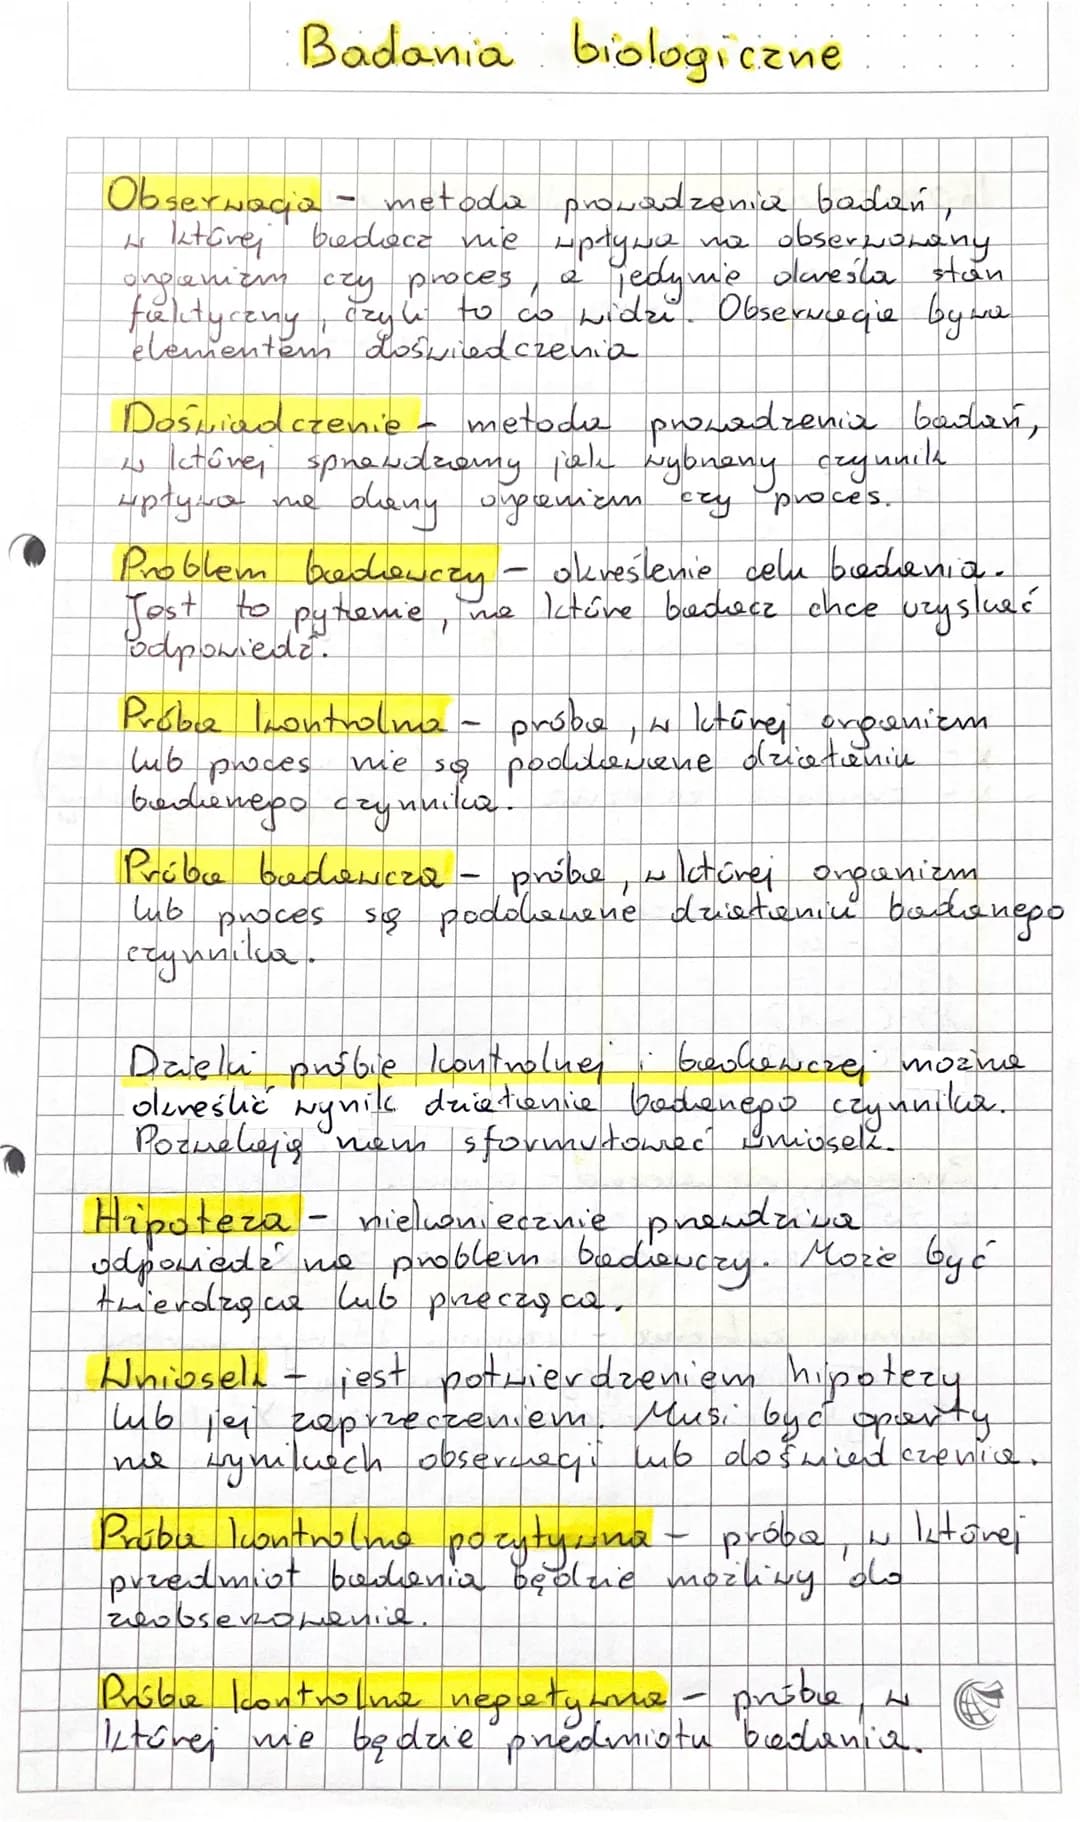 Badania biologiczne
Obserwacja - metoda prowadzenia badań,
w której badacz nie wpływa na obserwowany
organizm czy proces, a jedynie określa stan
faktyczny, czyli to co widzi. Obserwacja bywa
elementem doświadczenia
Doświadczenie - metoda prowadzenia badań,
w której sprawdzamy jak wybrany czynnik
wpływa na dany organizm czy proces.
Problem badawczy - określenie celu badania.
Jest to pytanie, na które badacz chce uzyskać
odpowiedź.
Próba kontrolna - próba, w której organizm
lub proces nie są poddawane działaniu
badanego czynnika.
Próba badawcza - próba, w której organizm
lub proces są poddawane działaniu badanego
czynnika.
Dzięki próbie kontrolnej i badawczej można
określić wynik działania badanego czynnika.
Pozwalają nam sformułować wniosek.
Hipoteza - niekoniecznie prawdziwa
odpowiedź na problem badawczy. Może być
twierdząca lub przecząca.
Wniosek - jest potwierdzeniem hipotezy
lub jej zaprzeczeniem. Musi być oparty
na wynikach obserwacji lub doświadczenia.
Próba kontrolna pozytywna - próba, w której
przedmiot badania będzie możliwy do
zaobserwowania.
Próba kontrolna negatywna - próba, w
której nie będzie przedmiotu badania.